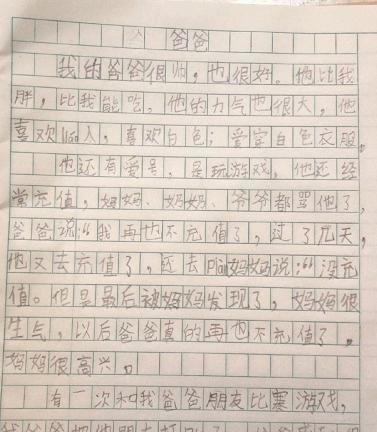 爸爸
我的爸爸很帅,也很好。他比我
胖,比我能吃。他的力气也很大,他
喜欢lia人,喜欢白色;爱穿白色衣服。
他还有爱号,是玩游戏。他还经
常充值,妈妈、奶奶、爷爷都骂他了,
爸爸说:“我再也不充值了,过了几天,
他又去充值了,还去pian妈妈说:“没充
值。但是最后被妈妈发现了,妈妈很
生气,以后爸爸真的再也不充值了。
妈妈很高兴。
有一次和我爸爸朋友比赛游戏,